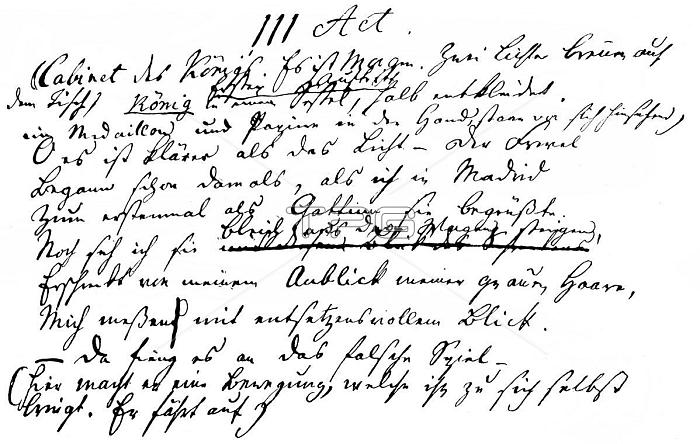 III Act.
(Cabinet des Königs. Es ist Morgen. Zwei Lichter brennen auf
dem Tisch)
Erster Auftritt
König in einem Sessel, halb entkleidet.
ein Medaillon und Papiere in der Hand, starr vor sich hinsehend,
O es ist klärer als das Licht – der Frevel
Begann schon damals, als ich in Madrid
Zum erstenmal als Gattinn sie begrüßte.
bleich aus dem Wagen steigend,
Noch seh ich sie
Erschreckt von meinem Anblick meiner grauen Haare,
Mich meßend mit entsetzensvollem Blick.
– Da fieng es an das falsche Spiel –
(hier macht er eine Bewegung, welche ihn zu sich selbst
bringt. Er fährt auf)